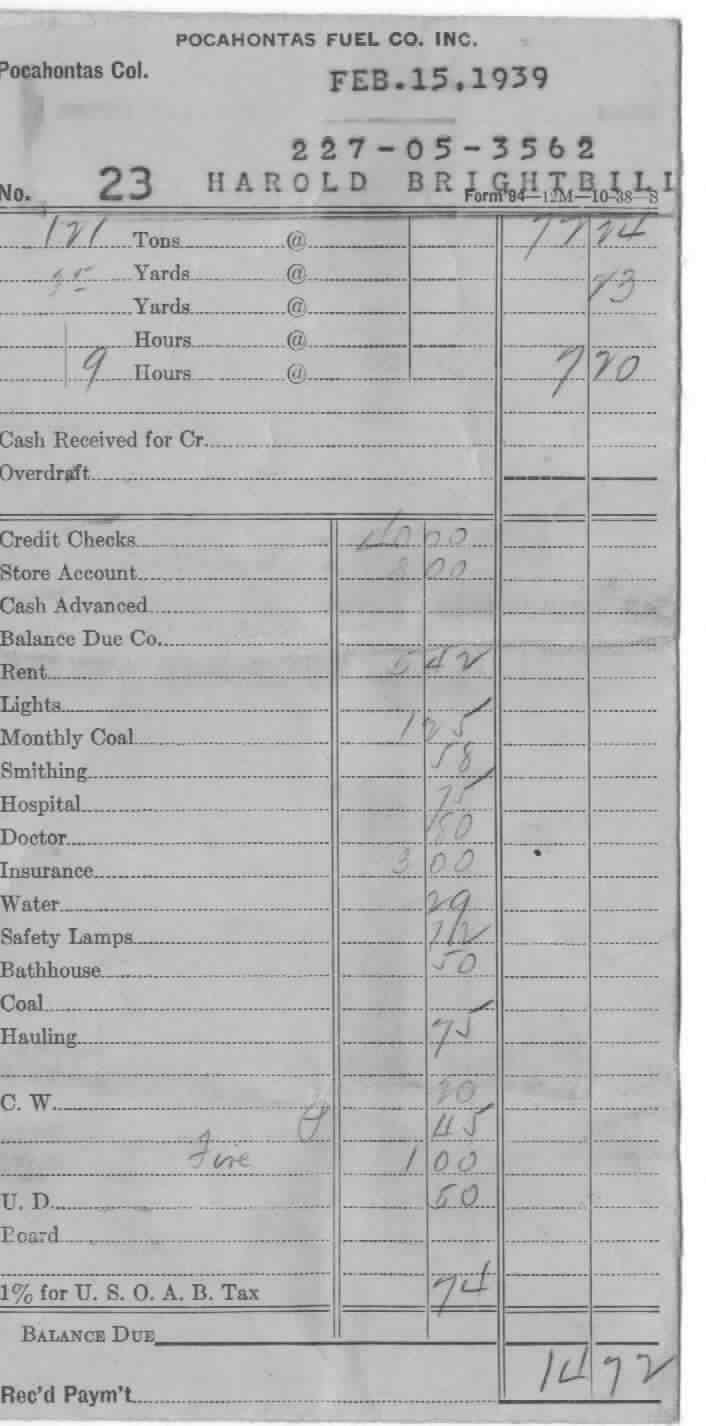 POCAHONTAS FUEL CO. INC.
Pocahontas Col. FEB.15,1939
227-05-3562
No. 23 HAROLD BRIGHTBILL
Form 94—12M—10-38—S
121 Tons @
Yards @ 73
Yards @
Hours @
9 Hours @ 7 20
Cash Received for Cr.
Overdraft
Credit Checks 40 00
Store Account 8 00
Cash Advanced
Balance Due Co.
Rent 5 42
Lights
Monthly Coal 1 25
Smithing 58
Hospital 75
Doctor 80
Insurance 3 00
Water 29
Safety Lamps
Bathhouse 50
Coal
Hauling 75
C. W. 30
45
Fire 1 00
U. D. 50
Board
1% for U. S. O. A. B. Tax 74
BALANCE DUE
14 72
Rec'd Paym't